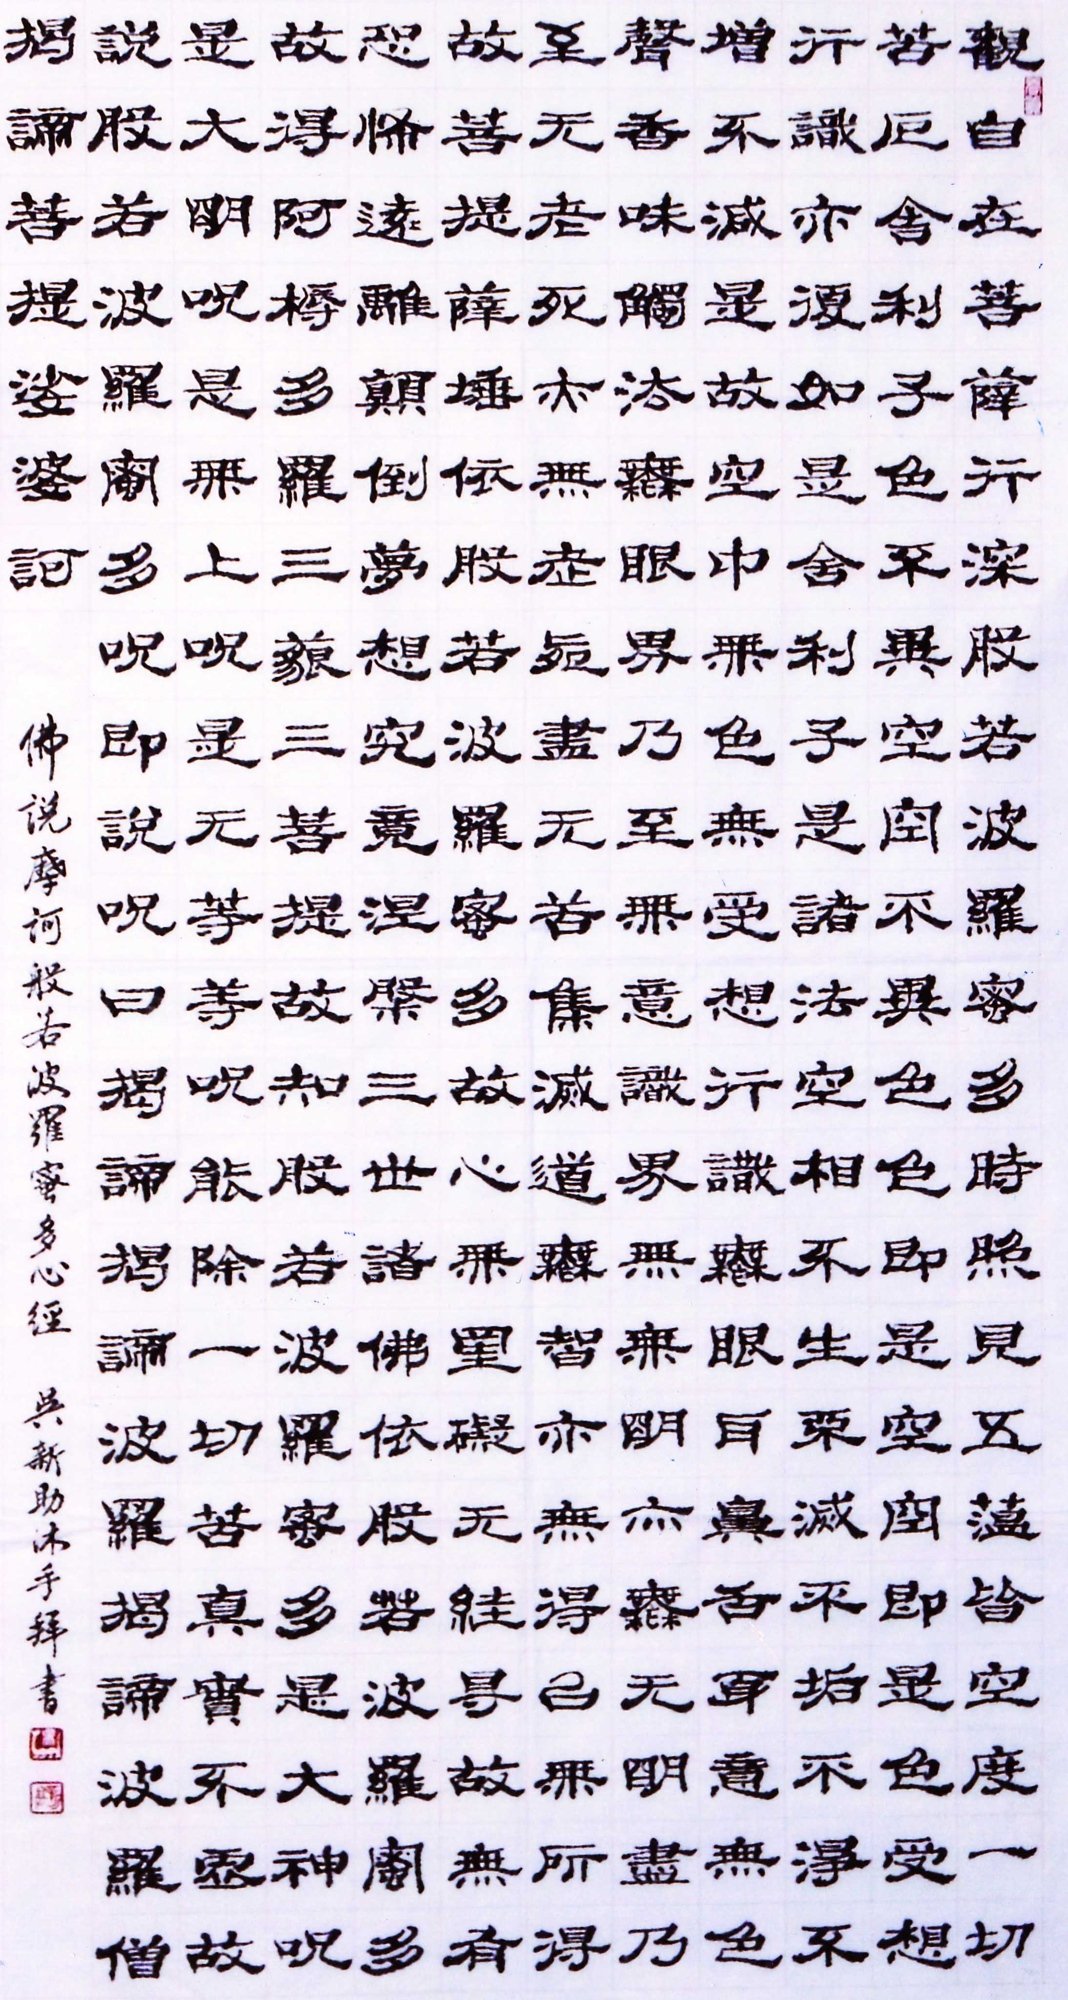 觀自在菩薩行深般若波羅密多時照見五蘊皆空度一切
苦厄舍利子色不異空空不異色色即是空空即是色受想
行識亦復如是舍利子是諸法空相不生不滅不垢不淨不
增不減是故空中無色無受想行識無眼耳鼻舌身意無色
聲香味觸法無眼界乃至無意識界無無明亦無无明盡乃
至无老死亦無老死盡无苦集滅道無智亦無得以無所得
故菩提薩埵依般若波羅密多故心無罣礙无絓㝵故無有
恐怖遠離顛倒夢想究竟涅槃三世諸佛依般若波羅密多
故得阿耨多羅三藐三菩提故知般若波羅密多是大神呪
是大明呪是無上呪是无等等呪能除一切苦真實不虛故
說般若波羅密多呪即說呪曰揭諦揭諦波羅揭諦波羅僧
揭諦菩提娑婆訶
佛説摩訶般若波羅蜜多心經 吳新助沐手拜書